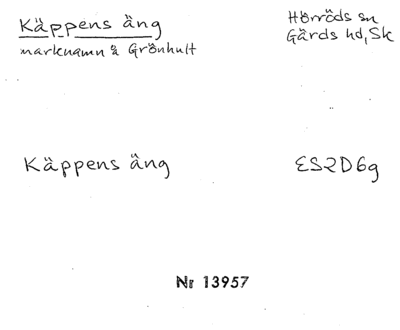 Käppens äng
marknamn å Grönhult
Hörröds sn
Gärds hd, Sk
Käppens äng
ES2D6g
Nr 13957